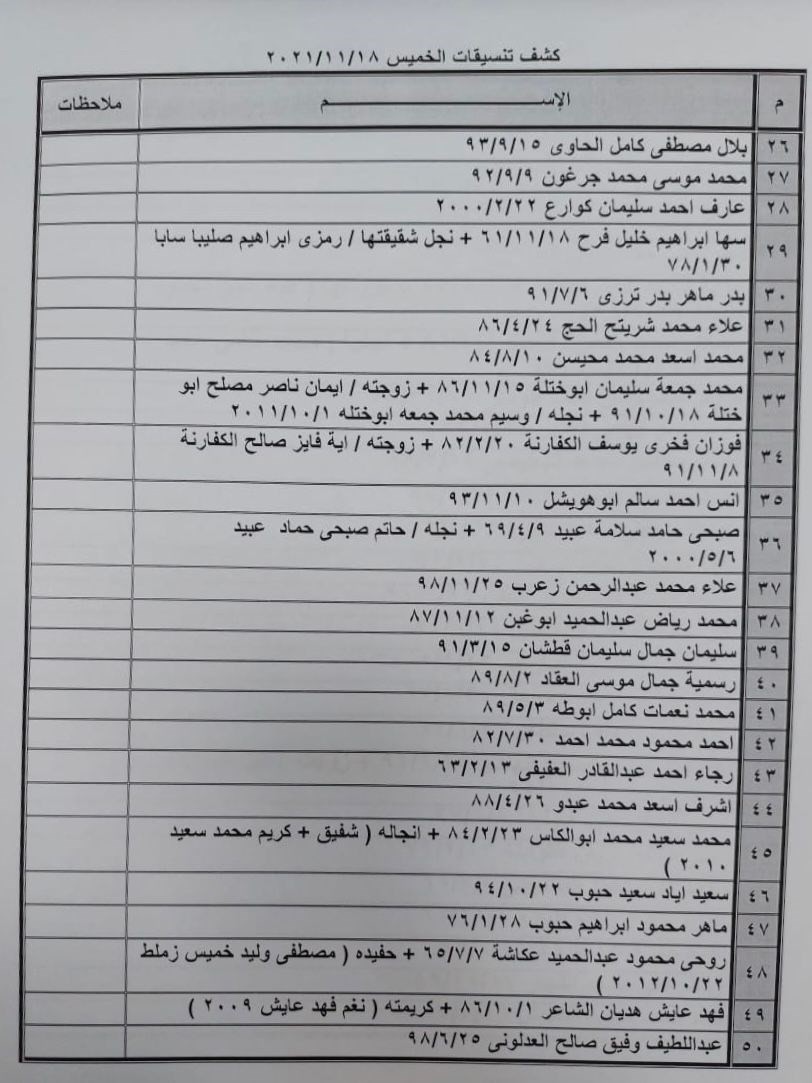 كشف تنسيقات الخميس ٢٠٢١/١١/١٨
م الإســـــــــــم ملاحظات
٢٦ بلال مصطفى كامل الحاوى ٩٣/٩/١٥
٢٧ محمد موسى محمد جرغون ٩٢/٩/٩
٢٨ عارف احمد سليمان كوارع ٢٠٠٠/٢/٢٢
٢٩ سها ابراهيم خليل فرح ٦١/١١/١٨ + نجل شقيقتها / رمزى ابراهيم صليبا سابا
٧٨/١/٣٠
٣٠ بدر ماهر بدر ترزى ٩١/٧/٦
٣١ علاء محمد شريتح الحج ٨٦/٤/٢٤
٣٢ محمد اسعد محمد محيسن ٨٤/٨/١٠
٣٣ محمد جمعة سليمان ابوختلة ٨٦/١١/١٥ + زوجته / ايمان ناصر مصلح ابو
ختلة ٩١/١٠/١٨ + نجله / وسيم محمد جمعه ابوختله ٢٠١١/١٠/١
٣٤ فوزان فخرى يوسف الكفارنة ٨٢/٢/٢٠ + زوجته / اية فايز صالح الكفارنة
٩١/١١/٨
٣٥ انس احمد سالم ابوهويشل ٩٣/١١/١٠
٣٦ صبحى حامد سلامة عبيد ٦٩/٤/٩ + نجله / حاتم صبحى حماد عبيد
٢٠٠٠/٥/٦
٣٧ علاء محمد عبدالرحمن زعرب ٩٨/١١/٢٥
٣٨ محمد رياض عبدالحميد ابوغبن ٨٧/١١/١٢
٣٩ سليمان جمال سليمان قطشان ٩١/٣/١٥
٤٠ رسمية جمال موسى العقاد ٨٩/٨/٢
٤١ محمد نعمات كامل ابوطه ٨٩/٥/٣
٤٢ احمد محمود محمد احمد ٨٢/٧/٣٠
٤٣ رجاء احمد عبدالقادر العفيفى ٦٣/٢/١٣
٤٤ اشرف اسعد محمد عبدو ٨٨/٤/٢٦
٤٥ محمد سعيد محمد ابوالكاس ٨٤/٢/٢٣ + انجاله ( شفيق + كريم محمد سعيد
٢٠١٠ )
٤٦ سعيد اياد سعيد حبوب ٩٤/١٠/٢٢
٤٧ ماهر محمود ابراهيم حبوب ٧٦/١/٢٨
٤٨ روحى محمود عبدالحميد عكاشة ٦٥/٧/٧ + حفيده ( مصطفى وليد خميس زملط
٢٠١٢/١٠/٢٢ )
٤٩ فهد عايش هديان الشاعر ٨٦/١٠/١ + كريمته ( نغم فهد عايش ٢٠٠٩ )
٥٠ عبداللطيف وفيق صالح العدلونى ٩٨/٦/٢٥